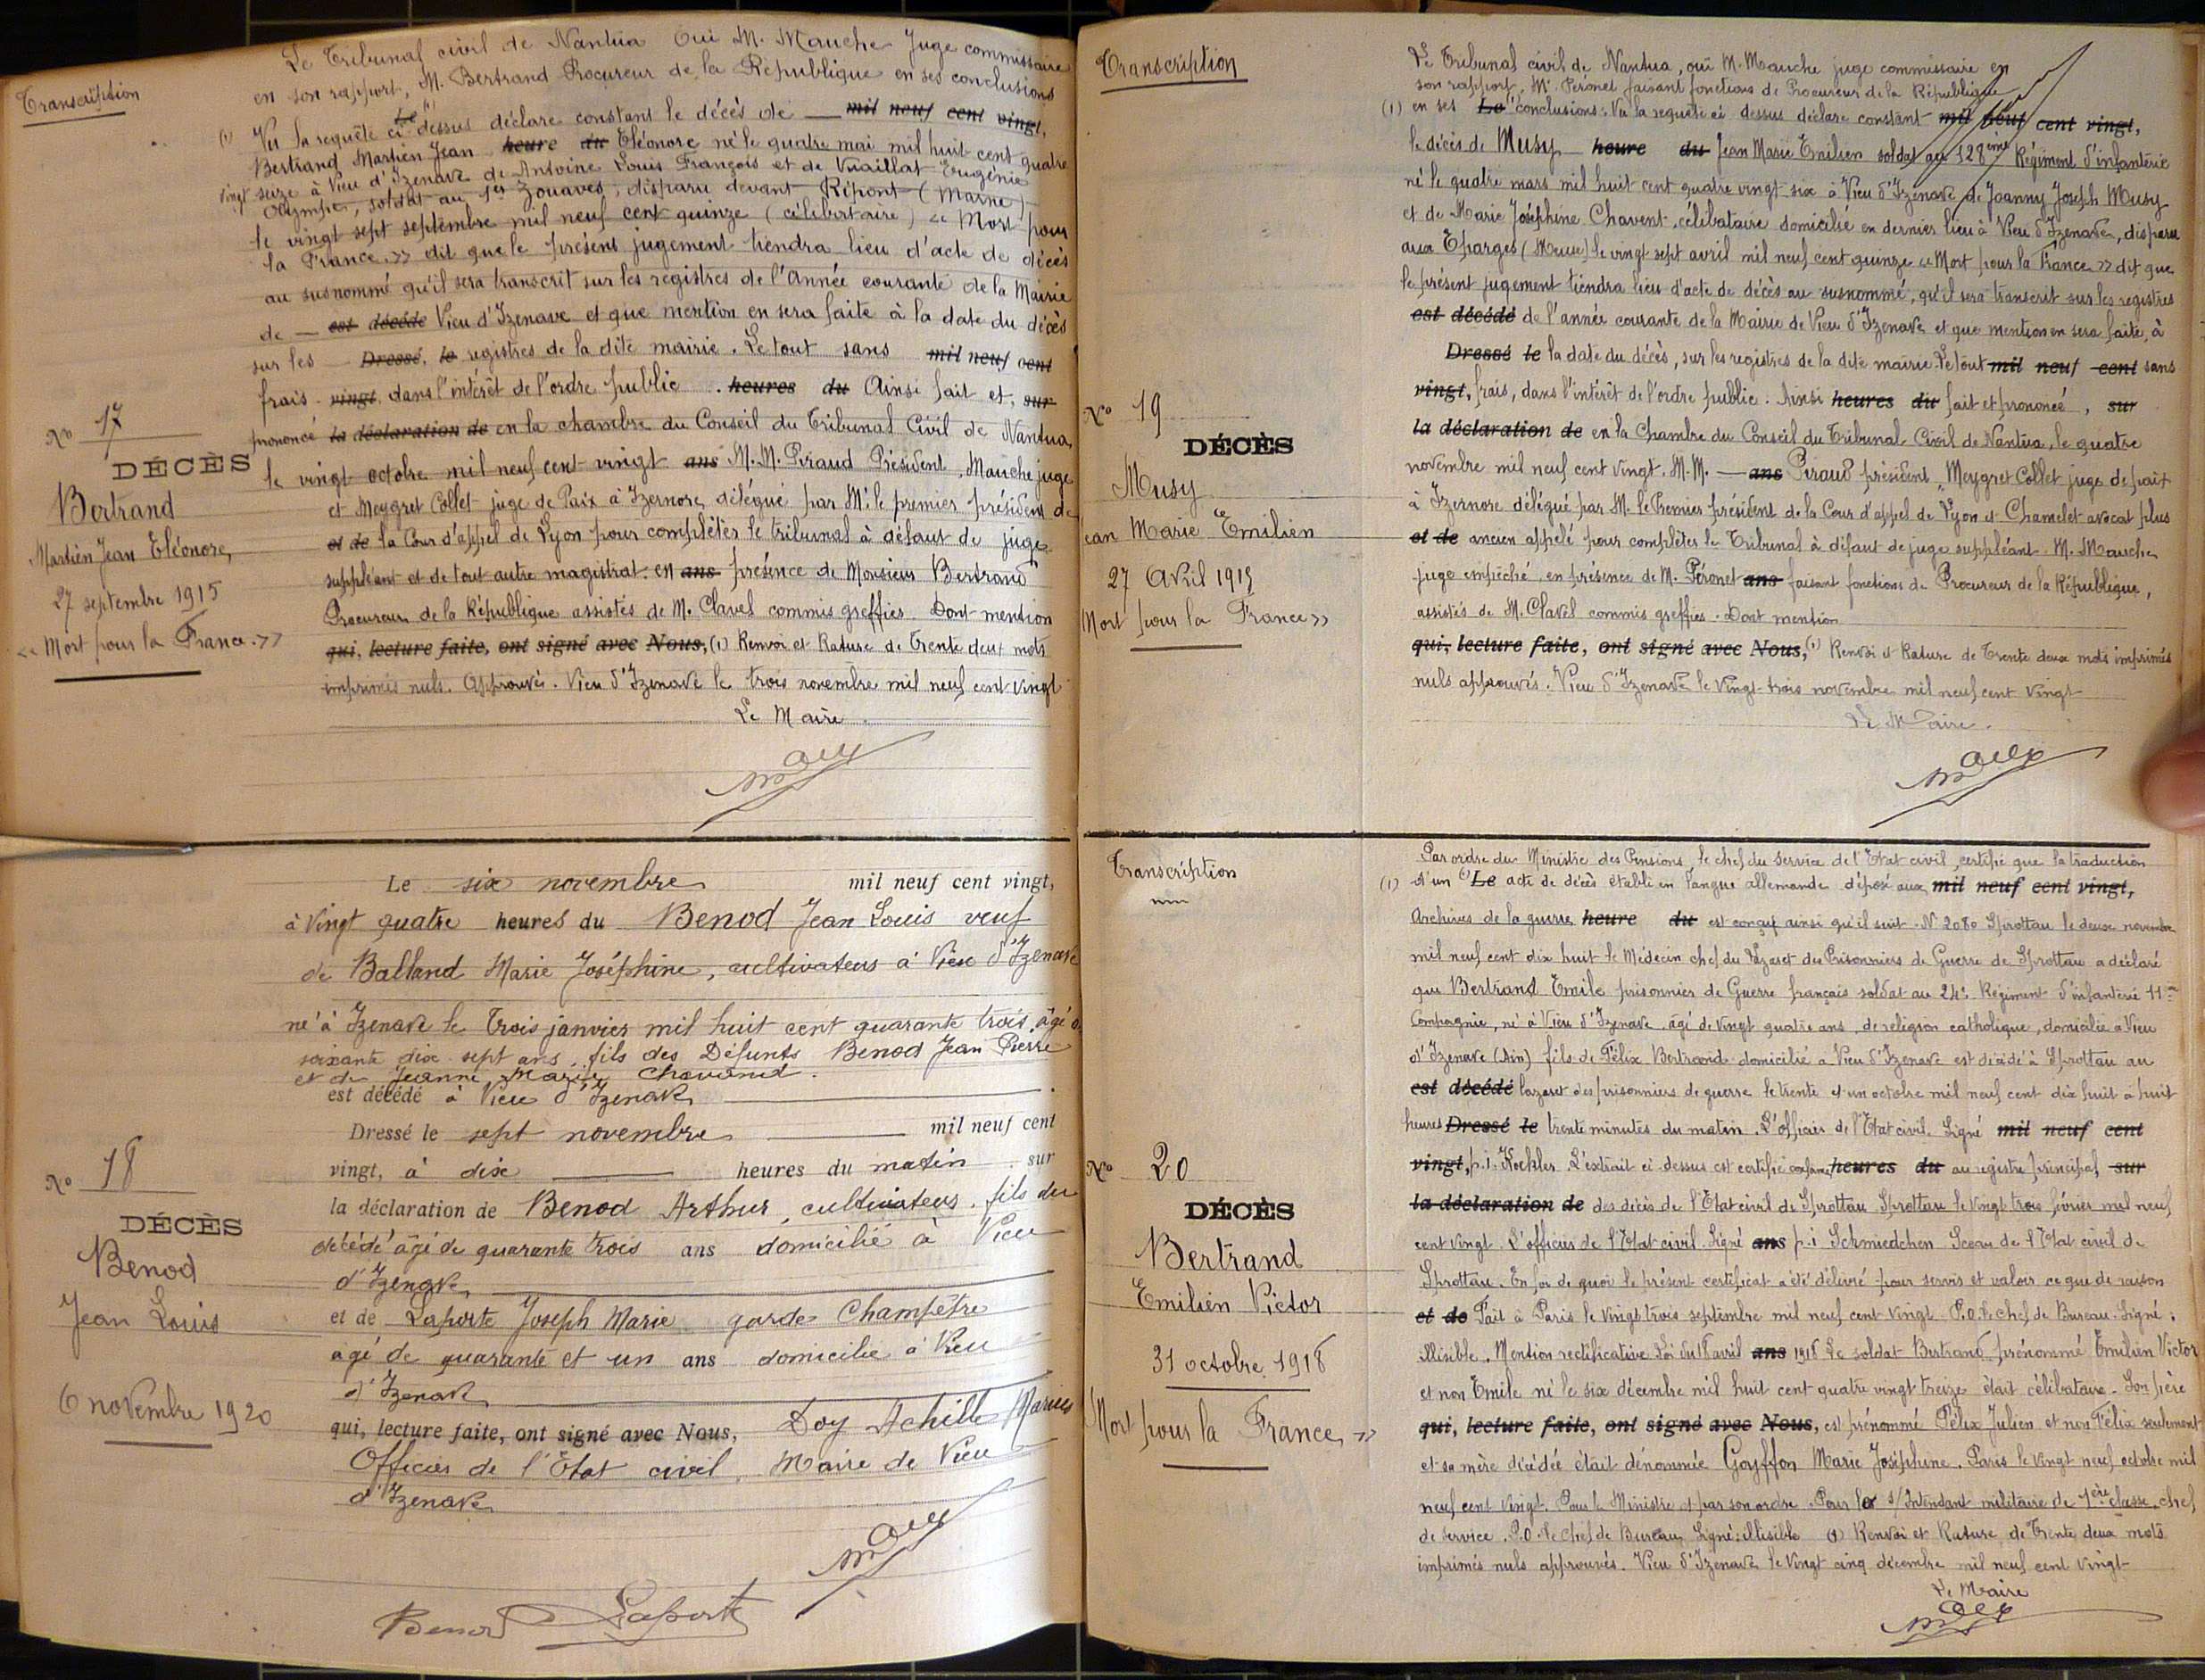 Transcription
Le Tribunal civil de Nantua Oui M. Mauche Juge commissaire
en son rapport, M. Bertrand Procureur de la République en ses conclusions
(1) Vu la requête ci Le (1) dessus déclare constant le décès de — mil neuf cent vingt,
Bertrand Martien Jean heure du Eléonore né le quatre mai mil huit cent quatre
vingt seize à Vieu d'Izenave de Antoine Louis François et de Vuaillat Eugénie
Olympe, soldat au 1er Zouaves, disparu devant Répont (Marne)
le vingt sept septembre mil neuf cent quinze (célibataire) « Mort pour
la France » dit que le présent jugement tiendra lieu d'acte de décès
au susnommé qu'il sera transcrit sur les registres de l'Année courante de la Mairie
de — est décédé Vieu d'Izenave et que mention en sera faite à la date du décès
sur les — Dressé, le registres de la dite mairie. Le tout sans mil neuf cent
frais - vingt, dans l'intérêt de l'ordre public . heures du Ainsi fait et, sur
prononcé la déclaration de en la chambre du Conseil du Tribunal Civil de Nantua,
le vingt octobre mil neuf cent vingt ans M.M. Piraud Président, Mauche juge
et Meygret Collet juge de Paix à Izernore, délégué par M. le premier président de
et de la Cour d'appel de Lyon pour compléter le tribunal à défaut de juge
suppléant et de tout autre magistrat. en ans présence de Monsieur Bertrand
Procureur de la République assistés de M. Clavel commis greffier. Dont mention
qui, lecture faite, ont signé avec Nous, (1) Renvoi et Rature de Trente deux mots
imprimés nuls. Approuvés. Vieu d'Izenave le trois novembre mil neuf cent vingt
Le Maire
Doy
No 17
DÉCÈS
Bertrand
Martien Jean Eléonore,
27 septembre 1915
« Mort pour la France. »
Le six novembre mil neuf cent vingt,
à Vingt quatre heures du Benod Jean Louis veuf
de Balland Marie Joséphine, cultivateur à Vieu d'Izenave
né à Izenave le Trois janvier mil huit cent quarante trois, âgé de
soixante dix sept ans, fils des Défunts Benod Jean Pierre
et de Jeanne Marie Chavand.
est décédé à Vieu d'Izenave
Dressé le sept novembre mil neuf cent
vingt, à dix heures du matin sur
la déclaration de Benod Arthur, cultivateur, fils du
décédé âgé de quarante trois ans domicilié à Vieu
d'Izenave
et de Laporte Joseph Marie garde Champêtre
agé de quarante et un ans domicilié à Vieu
d'Izenave
qui, lecture faite, ont signé avec Nous, Doy Achille Marius
Officier de l'Etat civil, Maire de Vieu
d'Izenave
Doy
Benod Laporte
No 18
DÉCÈS
Benod
Jean Louis
6 novembre 1920
Transcription
Le Tribunal civil de Nantua, ouï M. Mauche juge commissaire en
son rapport, M. Péronet faisant fonctions de Procureur de la République
(1) en ses Le (1) conclusions: Vu la requête ci dessus déclare constant mil neuf cent vingt,
le décès de Musy heure du Jean Marie Emilien soldat au 128ème Régiment d'infanterie
né le quatre mars mil huit cent quatre vingt six à Vieu d'Izenave de Joanny Joseph Musy
et de Marie Joséphine Chavent, célibataire domicilié en dernier lieu à Vieu d'Izenave, disparu
aux Eparges (Meuse) le vingt sept avril mil neuf cent quinze « Mort pour la France » dit que
le présent jugement tiendra lieu d'acte de décès au susnommé, qu'il sera transcrit sur les registres
est décédé de l'année courante de la Mairie de Vieu d'Izenave et que mention en sera faite, à
Dressé le la date du décès, sur les registres de la dite mairie. Le tout mil neuf cent sans
vingt, frais, dans l'intérêt de l'ordre public. Ainsi heures du fait et prononcé, sur
la déclaration de en la Chambre du Conseil du Tribunal Civil de Nantua, le quatre
novembre mil neuf cent vingt. M.M. — ans Piraud président, Meygret Collet juge de paix
à Izernore délégué par M. le Premier président de la Cour d'appel de Lyon et Chamelet avocat plus
et de ancien appelé pour compléter le Tribunal à défaut de juge suppléant M. Mauche
juge empêché, en présence de M. Péronet ans faisant fonctions de Procureur de la République,
assistés de M. Clavel commis greffier. Dont mention
qui, lecture faite, ont signé avec Nous, (1) Renvoi et Rature de Trente deux mots imprimés
nuls approuvés. Vieu d'Izenave le Vingt-trois novembre mil neuf cent Vingt
Le Maire.
Doy
No 19
DÉCÈS
Musy
Jean Marie Emilien
27 Avril 1915
Mort pour la France »
Transcription
Par ordre du Ministre des Pensions, le chef du Service de l'Etat civil, certifie que la traduction
(1) d'un (1) Le acte de décès établi en langue allemande déposé aux mil neuf cent vingt,
Archives de la guerre heure du est conçu ainsi qu'il suit. N° 2080 Sprottau le deux novembre
mil neuf cent dix huit le Médecin chef du Lazaret des Prisonniers de Guerre de Sprottau a déclaré
que Bertrand Emile prisonnier de Guerre français soldat au 24e Régiment d'infanterie 11me
Compagnie, né à Vieu d'Izenave, âgé de vingt quatre ans, de religion catholique, domicilié à Vieu
d'Izenave (Ain) fils de Félix Bertrand domicilié à Vieu d'Izenave est décédé à Sprottau au
est décédé lazaret des prisonniers de guerre le trente et un octobre mil neuf cent dix huit à huit
heures Dressé le trente minutes du matin. L'officier de l'Etat civil. Signé mil neuf cent
vingt, p.i. Kockler L'extrait ci dessus est certifié conforme heures du au registre principal sur
la déclaration de des décès de l'Etat civil de Sprottau. Sprottau le vingt trois février mil neuf
cent vingt. L'officier de l'Etat civil. Signé ans p.i Schmiedchen Sceau de l'Etat civil de
Sprottau. En foi de quoi le présent certificat a été délivré pour servir et valoir ce que de raison
et de Fait à Paris le vingt trois septembre mil neuf cent vingt. P.O. le chef de Bureau: Signé:
illisible. Mention rectificative Loi du 18 avril ans 1918 Le soldat Bertrand prénommé Emilien Victor
et non Emile né le six décembre mil huit cent quatre vingt treize était célibataire. Son père
qui, lecture faite, ont signé avec Nous, est prénommé Félix Julien et non Félix seulement
et sa mère décédée était dénommée Goyffon Marie Joséphine. Paris le vingt neuf octobre mil
neuf cent vingt. Pour le Ministre et par son ordre. Pour le s/Intendant militaire de 1ère classe, chef
de service. P.O. le chef de Bureau Signé: illisible (1) Renvoi et Rature de Trente deux mots
imprimés nuls approuvés. Vieu d'Izenave le vingt cinq décembre mil neuf cent vingt
Le Maire
Doy
No 20
DÉCÈS
Bertrand
Emilien Victor
31 octobre 1918
Mort pour la France »